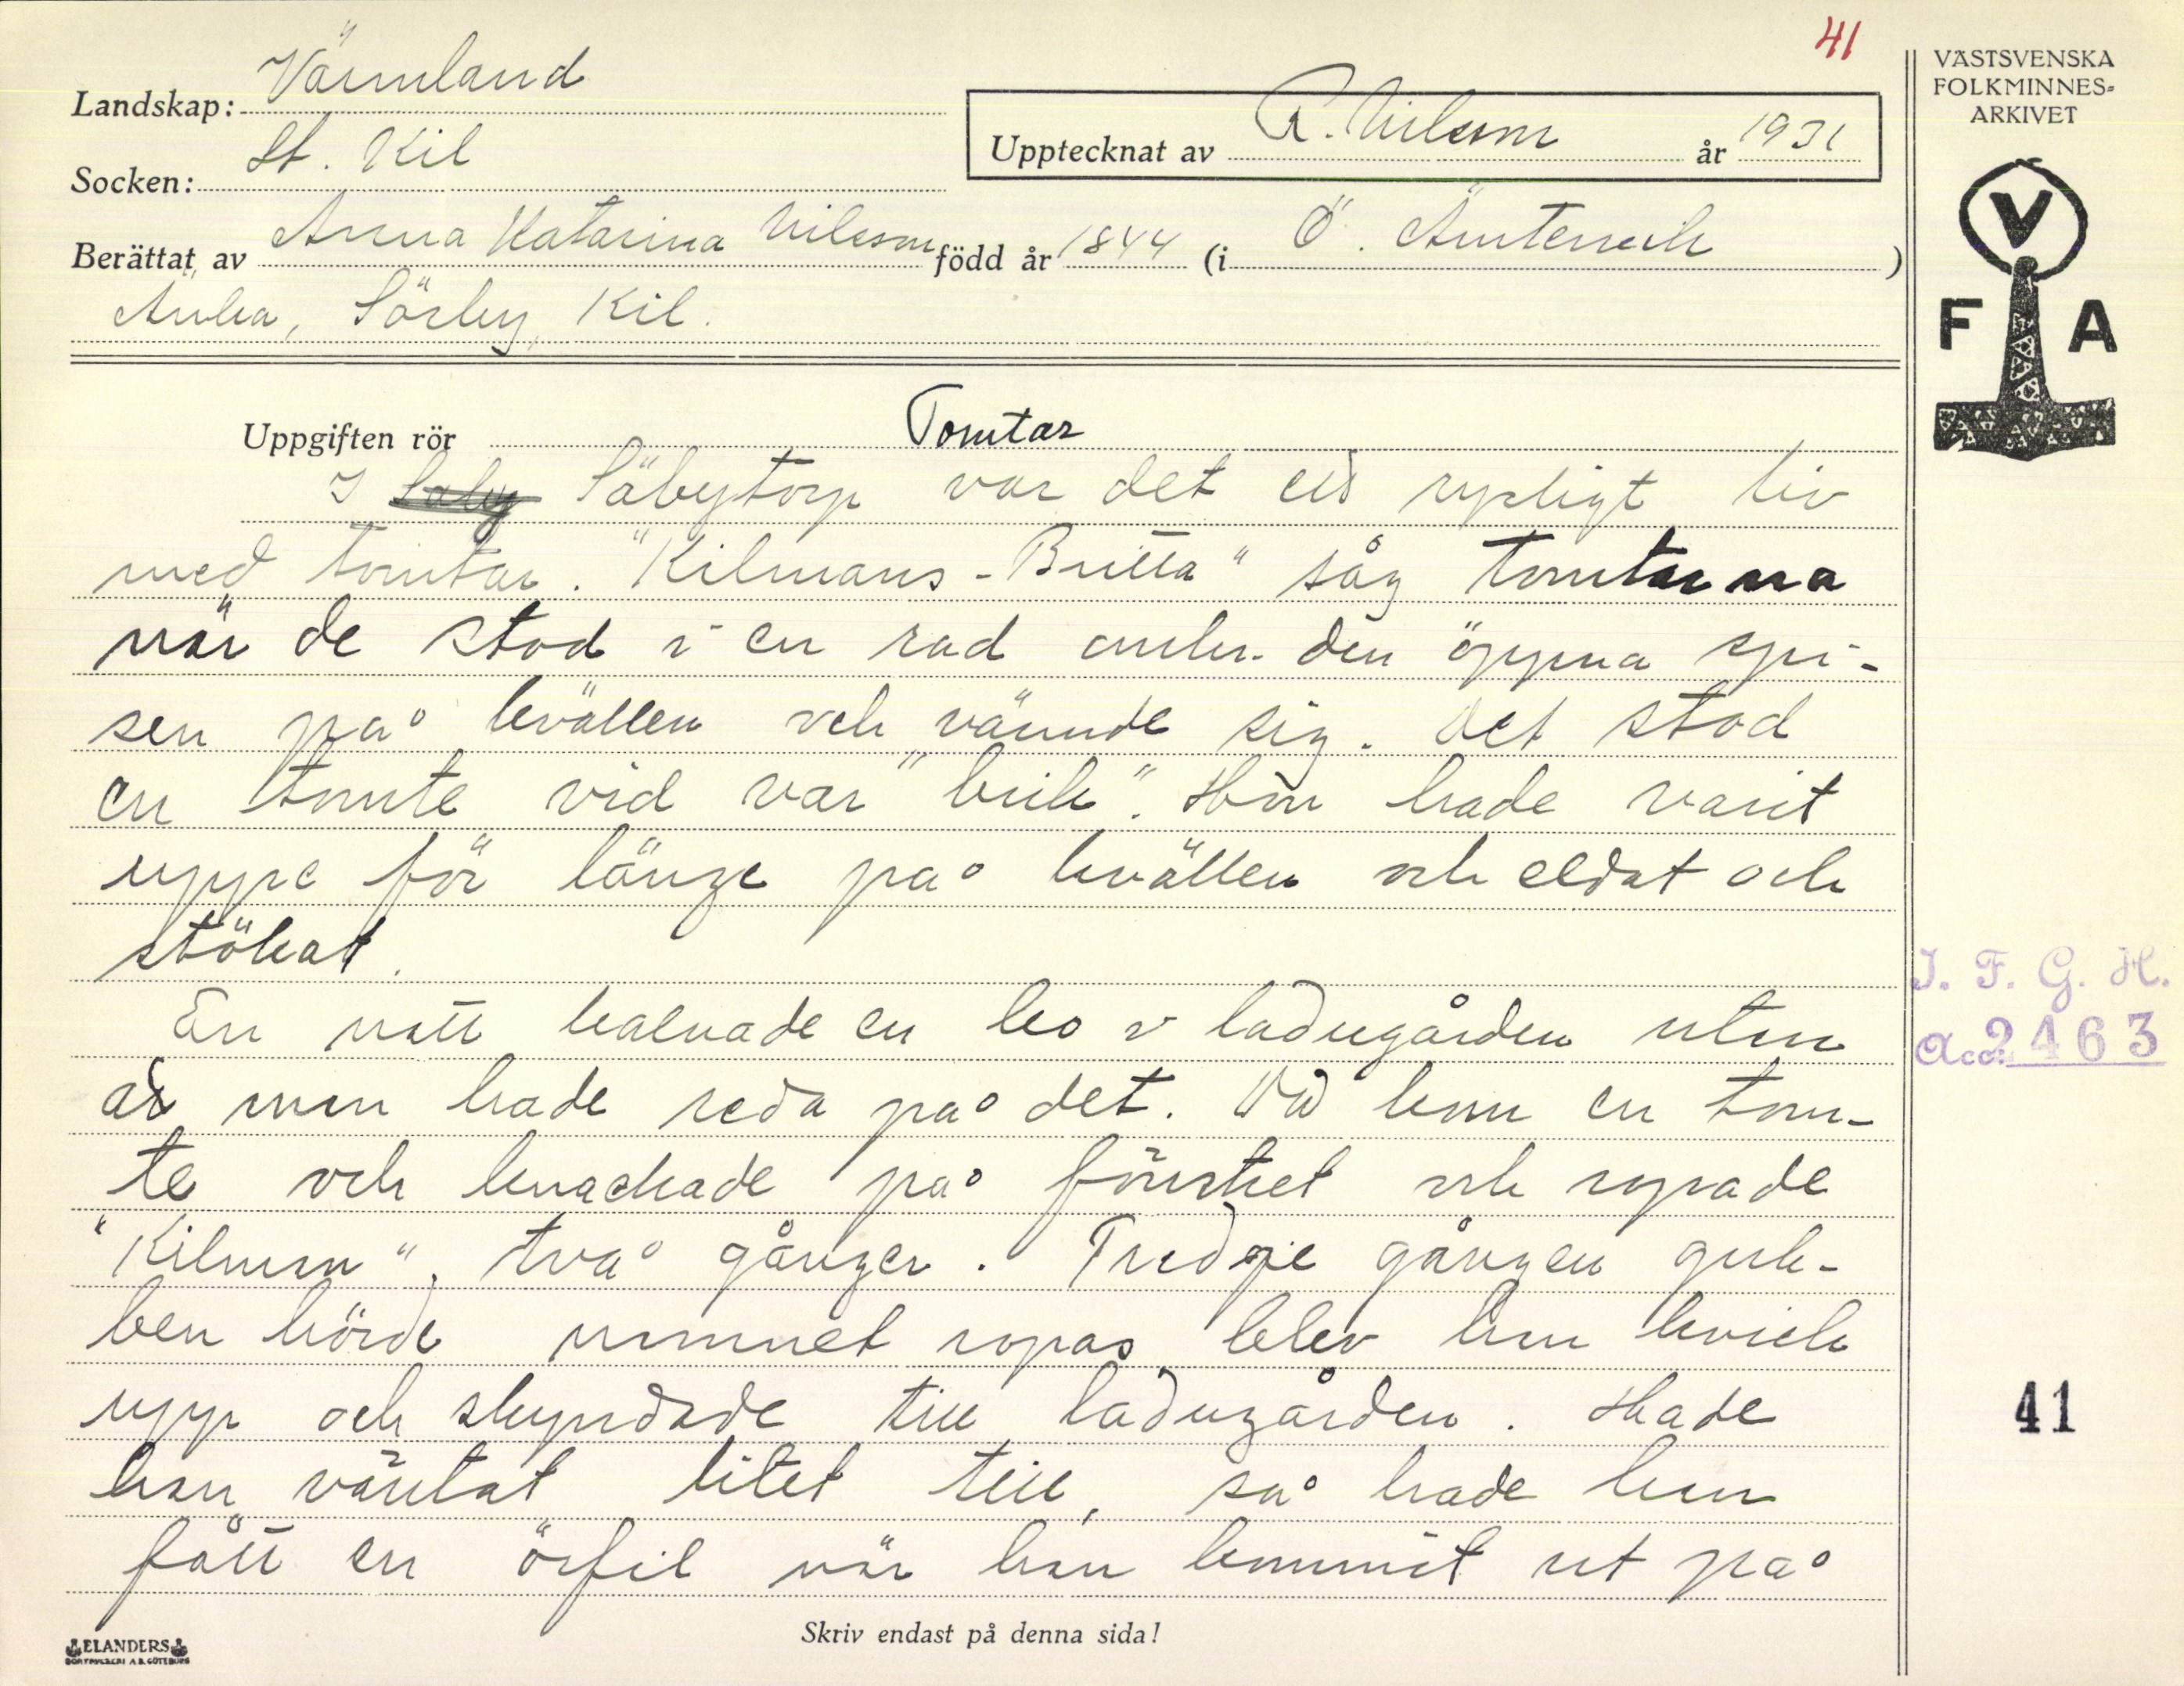 41
VÄSTSVENSKA
FOLKMINNES-
ARKIVET
V
F A
Landskap: Värmland
Socken: St. Kil
Upptecknat av R. Nilsson år 1931
Berättat av Anna Katarina Nilsson född år 1844 (i Ö. Ämtervik)
Änka, Sörby, Kil.
Uppgiften rör Tomtar
I Säbytorp var det ett rysligt liv
med tomtar. "Kilmans-Britta" såg tomtarna
när de stod i en rad under den öppna spi-
sen på kvällen och värmde sig. Det stod
en tomte vid var "brik". Hon hade varit
uppe för länge på kvällen och eldat och
stökat.
En natt kalvade en ko i ladugården utan
att man hade reda på det. Då kom en tom-
te och knackade på fönstret och ropade
"Kilman", två gånger. Tredje gången gub-
ben hörde namnet ropas blev han kvick
upp och skyndade till ladugården. Hade
han väntat litet till, så hade han
fått en örfil när han kommit ut på
I. F. G. H.
Acc: 2463
41
Skriv endast på denna sida!
ELANDERS
BOKTRYCKERI A.B. GÖTEBORG